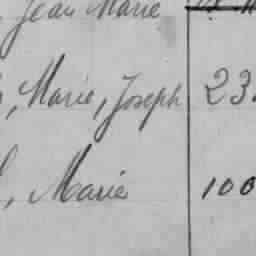 Jean Marie
, Marie, Joseph 23
, Marie 100